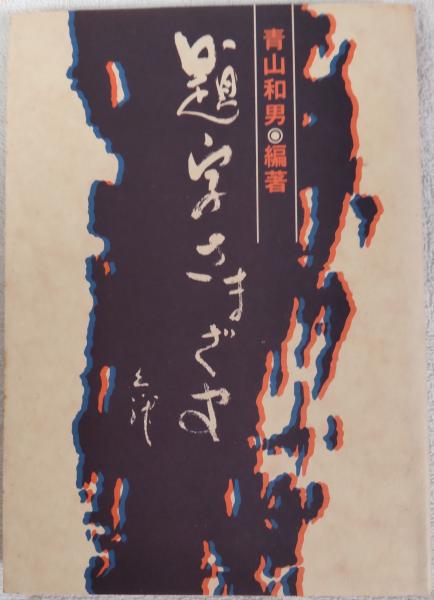 青山和男◎編著
題字さまざま